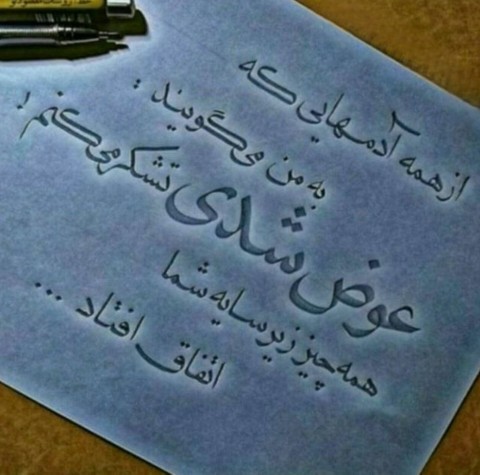 از همه آدمهایی که
به من می گویند :
عوض شدی تشکر می کنم !
همه چیز زیر سایه شما
اتفاق افتاد ...